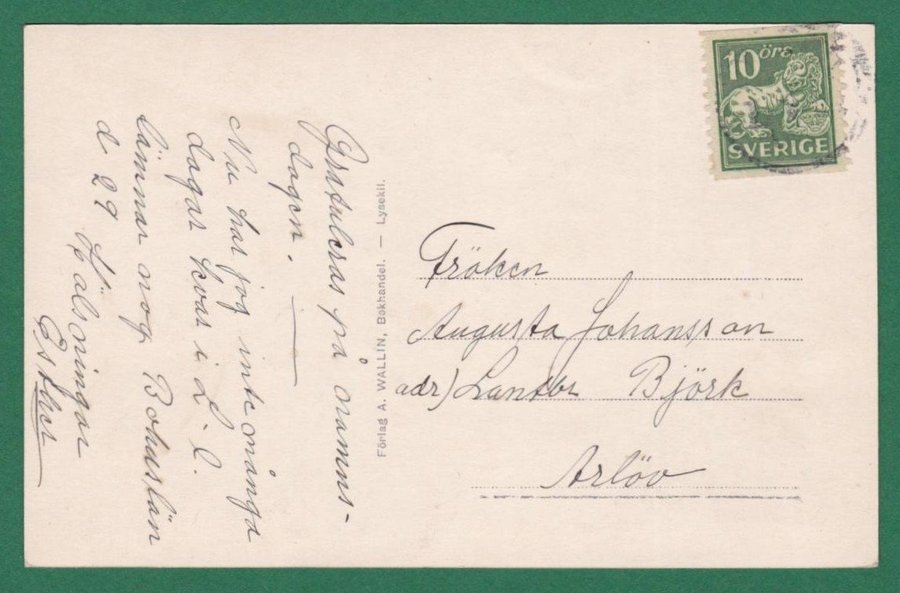 Gratuleras på namns-
dagen.
Nu har jag inte många
dagar kvar i L-l.
lämnar nog Bohuslän
d 29 Hälsningar
Esther
Förlag A. WALLIN, Bokhandel. — Lysekil.
10 öre
SVERIGE
Fröken
Augusta Johansson
adr) Lantbr Björk
Arlöv